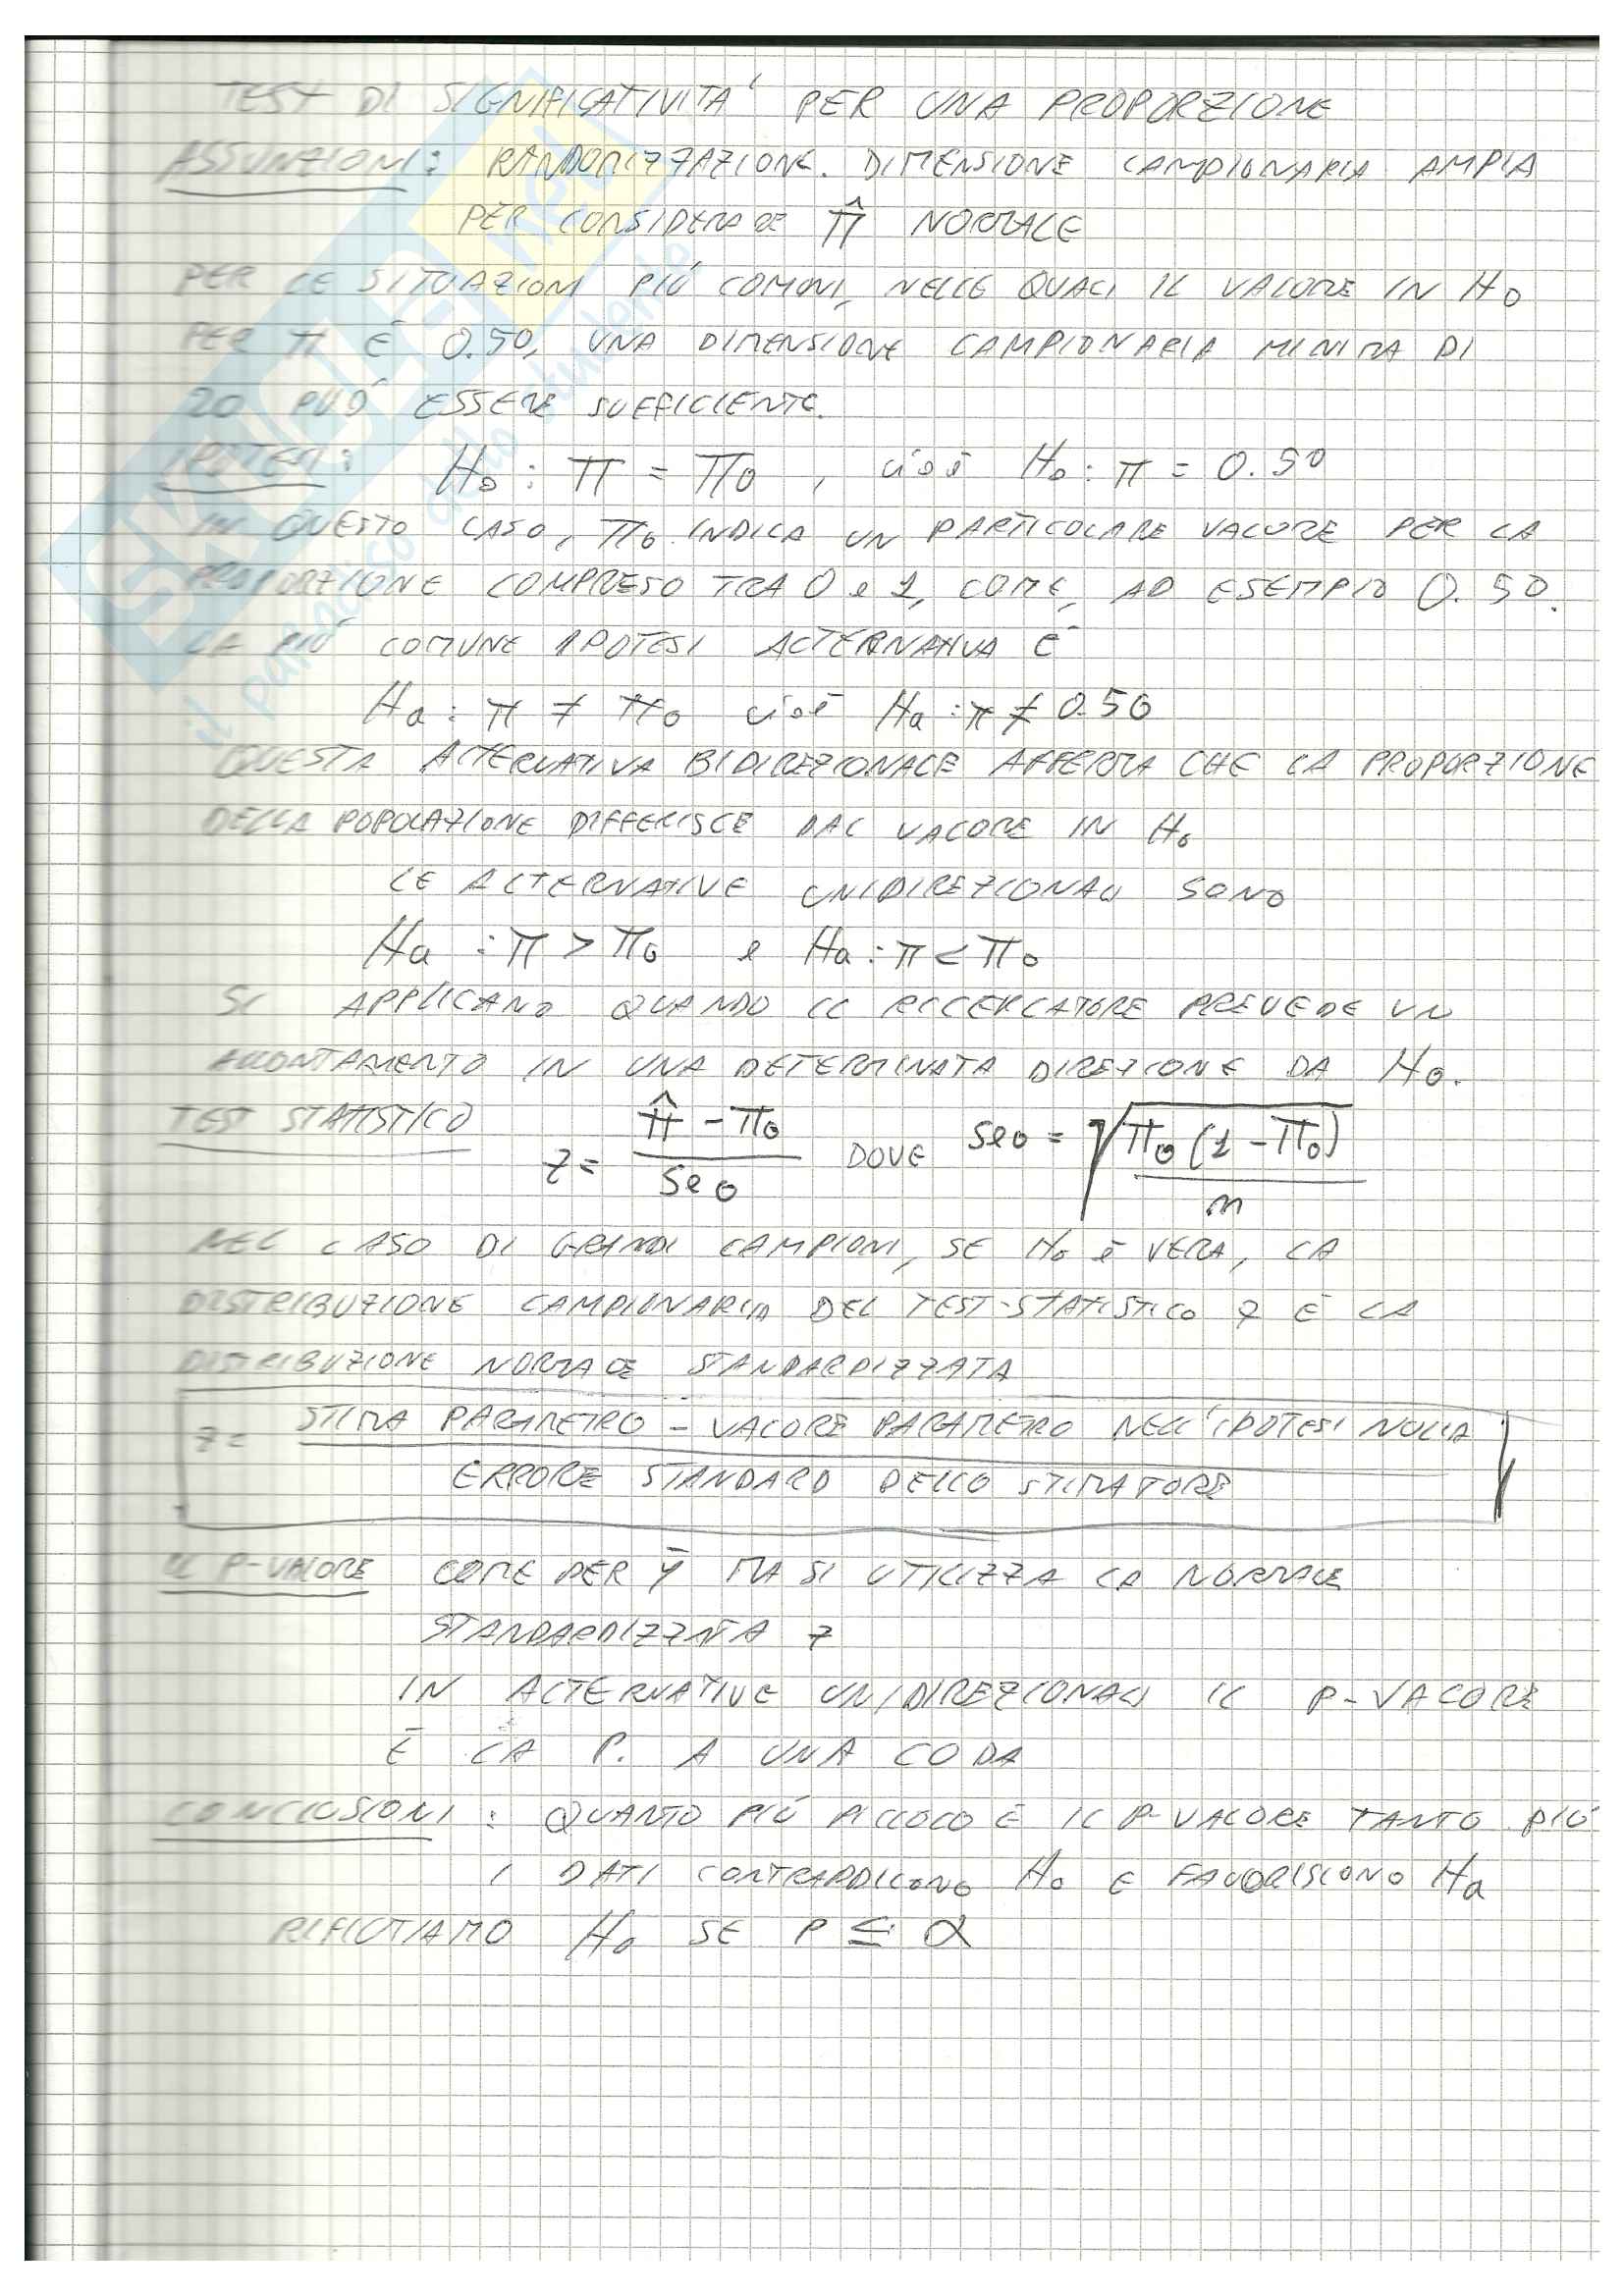 TEST DI SIGNIFICATIVITA' PER UNA PROPORZIONE
ASSUNZIONI: RANDOMIZZAZIONE. DIMENSIONE CAMPIONARIA AMPIA
PER CONSIDERARE π̂ NORMALE
PER LE SITUAZIONI PIÚ COMUNI, NELLE QUALI IL VALORE IN H₀
PER π È 0.50, UNA DIMENSIONE CAMPIONARIA MINIMA DI
20 PUÓ ESSERE SUFFICIENTE.
IPOTESI: H₀ : π = π₀ , cioè H₀ : π = 0.50
IN QUESTO CASO, π₀ INDICA UN PARTICOLARE VALORE PER LA
PROPORZIONE COMPRESO TRA 0 e 1, COME, AD ESEMPIO 0.50.
LA PIÚ COMUNE IPOTESI ALTERNATIVA È
Ha : π ≠ π₀ cioè Ha : π ≠ 0.50
QUESTA ALTERNATIVA BIDIREZIONALE AFFERMA CHE LA PROPORZIONE
DELLA POPOLAZIONE DIFFERISCE DAL VALORE IN H₀
LE ALTERNATIVE UNIDIREZIONALI SONO
Ha : π > π₀ e Ha : π < π₀
SI APPLICANO QUANDO IL RICERCATORE PREVEDE UN
ALLONTAMENTO IN UNA DETERMINATA DIREZIONE DA H₀.
TEST STATISTICO z = (π̂ - π₀) / se₀ DOVE se₀ = √(π₀ (1 - π₀) / n)
NEL CASO DI GRANDI CAMPIONI, SE H₀ è VERA, LA
DISTRIBUZIONE CAMPIONARIA DEL TEST-STATISTICO z È LA
DISTRIBUZIONE NORMALE STANDARDIZZATA
z = STIMA PARAMETRO - VALORE PARAMETRO NELL'IPOTESI NULLA
ERRORE STANDARD DELLO STIMATORE
IL P-VALORE COME PER ȳ MA SI UTILIZZA LA NORMALE
STANDARDIZZATA z
IN ALTERNATIVE UNIDIREZIONALI IL P-VALORE
È LA P. A UNA CODA
CONCLUSIONI : QUANTO PIÚ PICCOLO È IL P-VALORE TANTO PIÚ
I DATI CONTRADDICONO H₀ E FAVORISCONO Ha
RIFIUTIAMO H₀ SE P ≤ α
SKUOLA.net
il paradiso dello studente